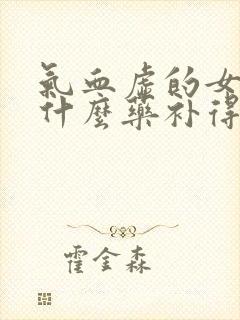 氣血虛的女
什麼藥补得
霍金森